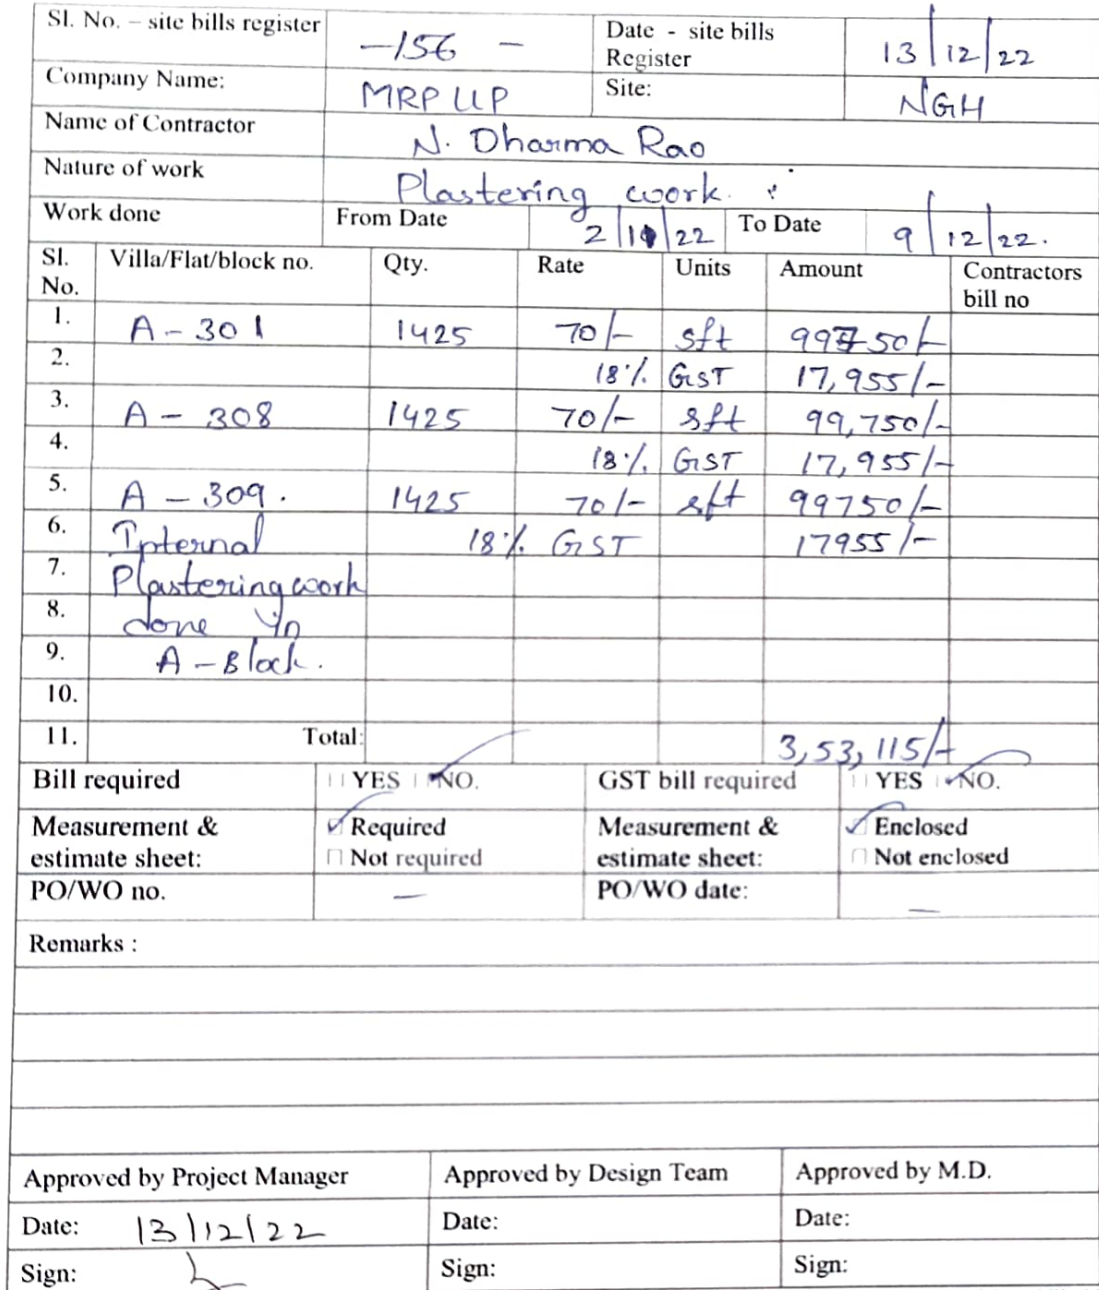 Sl. No. – site bills register -156 - Date - site bills Register 13/12/22
Company Name: MRP LLP Site: NGH
Name of Contractor N. Dharma Rao
Nature of work Plastering work.
Work done From Date To Date 9/12/22.
Sl. No. Villa/Flat/block no. Qty. Rate Units Amount Contractors bill no
1. A - 301 1425 70/- sft 99750/-
2. 18% GST 17,955/-
3. A - 308 1425 70/- sft 99,750/-
4. 18% GST 17,955/-
5. A - 309. 1425 70/- sft 99750/-
6. Internal 18% GST 17955/-
7. Plastering work
8. done in
9. A - Block.
10.
11. Total: 3,53,115/-
Bill required YES NO. GST bill required YES NO.
Measurement & estimate sheet: Required Not required Measurement & estimate sheet: Enclosed Not enclosed
PO/WO no. — PO/WO date: —
Remarks :
Approved by Project Manager Approved by Design Team Approved by M.D.
Date: 13/12/22 Date: Date:
Sign: Sign: Sign: